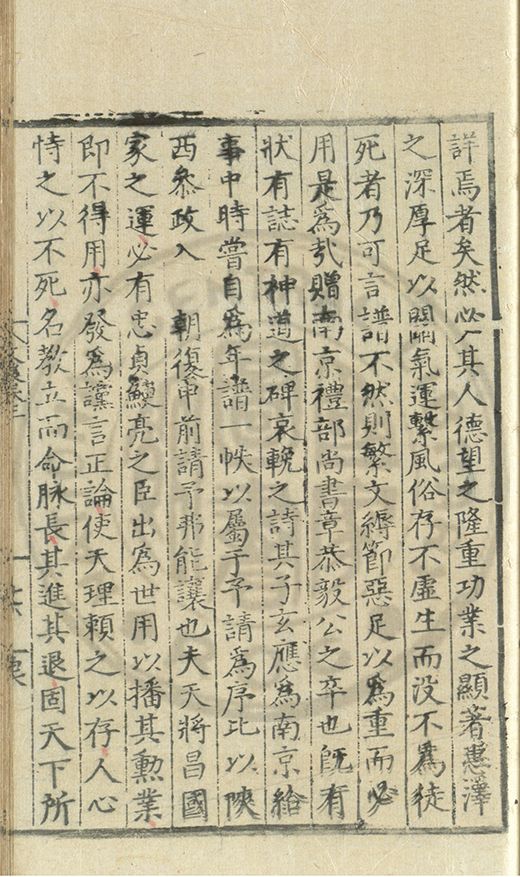 詳焉者矣然必其人德望之隆重功業之顯著惠澤
之深厚足以關氣運繫風俗存不虛生而没不爲徒
死者乃可言譜不然則繁文縟節惡足以爲重而必
用是爲㢤贈南京禮部尚書章恭毅公之卒也旣有
狀有誌有神道之碑哀輓之詩其子玄應爲南京給
事中時嘗自爲年譜一帙以屬于予請爲序比以陝
西叅政入　朝復申前請予弗能讓也夫天將昌國
家之運必有忠貞鯁亮之臣出爲世用以播其勳業
即不得用亦發爲讜言正論使天理賴之以存人心
恃之以不死名教立而命脉長其進其退固天下所